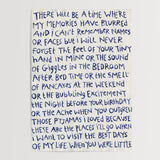 THERE WILL BE A TIME WHERE
MY MEMORIES HAVE BLURRED
AND I CAN'T REMEMBER NAMES
OR FACES BUT I WILL NEVER
FORGET THE FEEL OF YOUR TINY
HAND IN MINE OR THE SOUND
OF GIGGLES IN THE BEDROOM
AFTER BED TIME OR THE SMELL
OF PANCAKES AT THE WEEKEND
OR THE BUBBLING EXCITEMENT
THE NIGHT BEFORE YOUR BIRTHDAY
OR THE ACHE WHEN YOU OUTGREW
THOSE PYJAMAS I LOVED BECAUSE
THESE ARE THE PLACES I'LL GO WHEN
I WANT TO VISIT THE BEST DAYS
OF MY LIFE, WHEN YOU WERE LITTLE